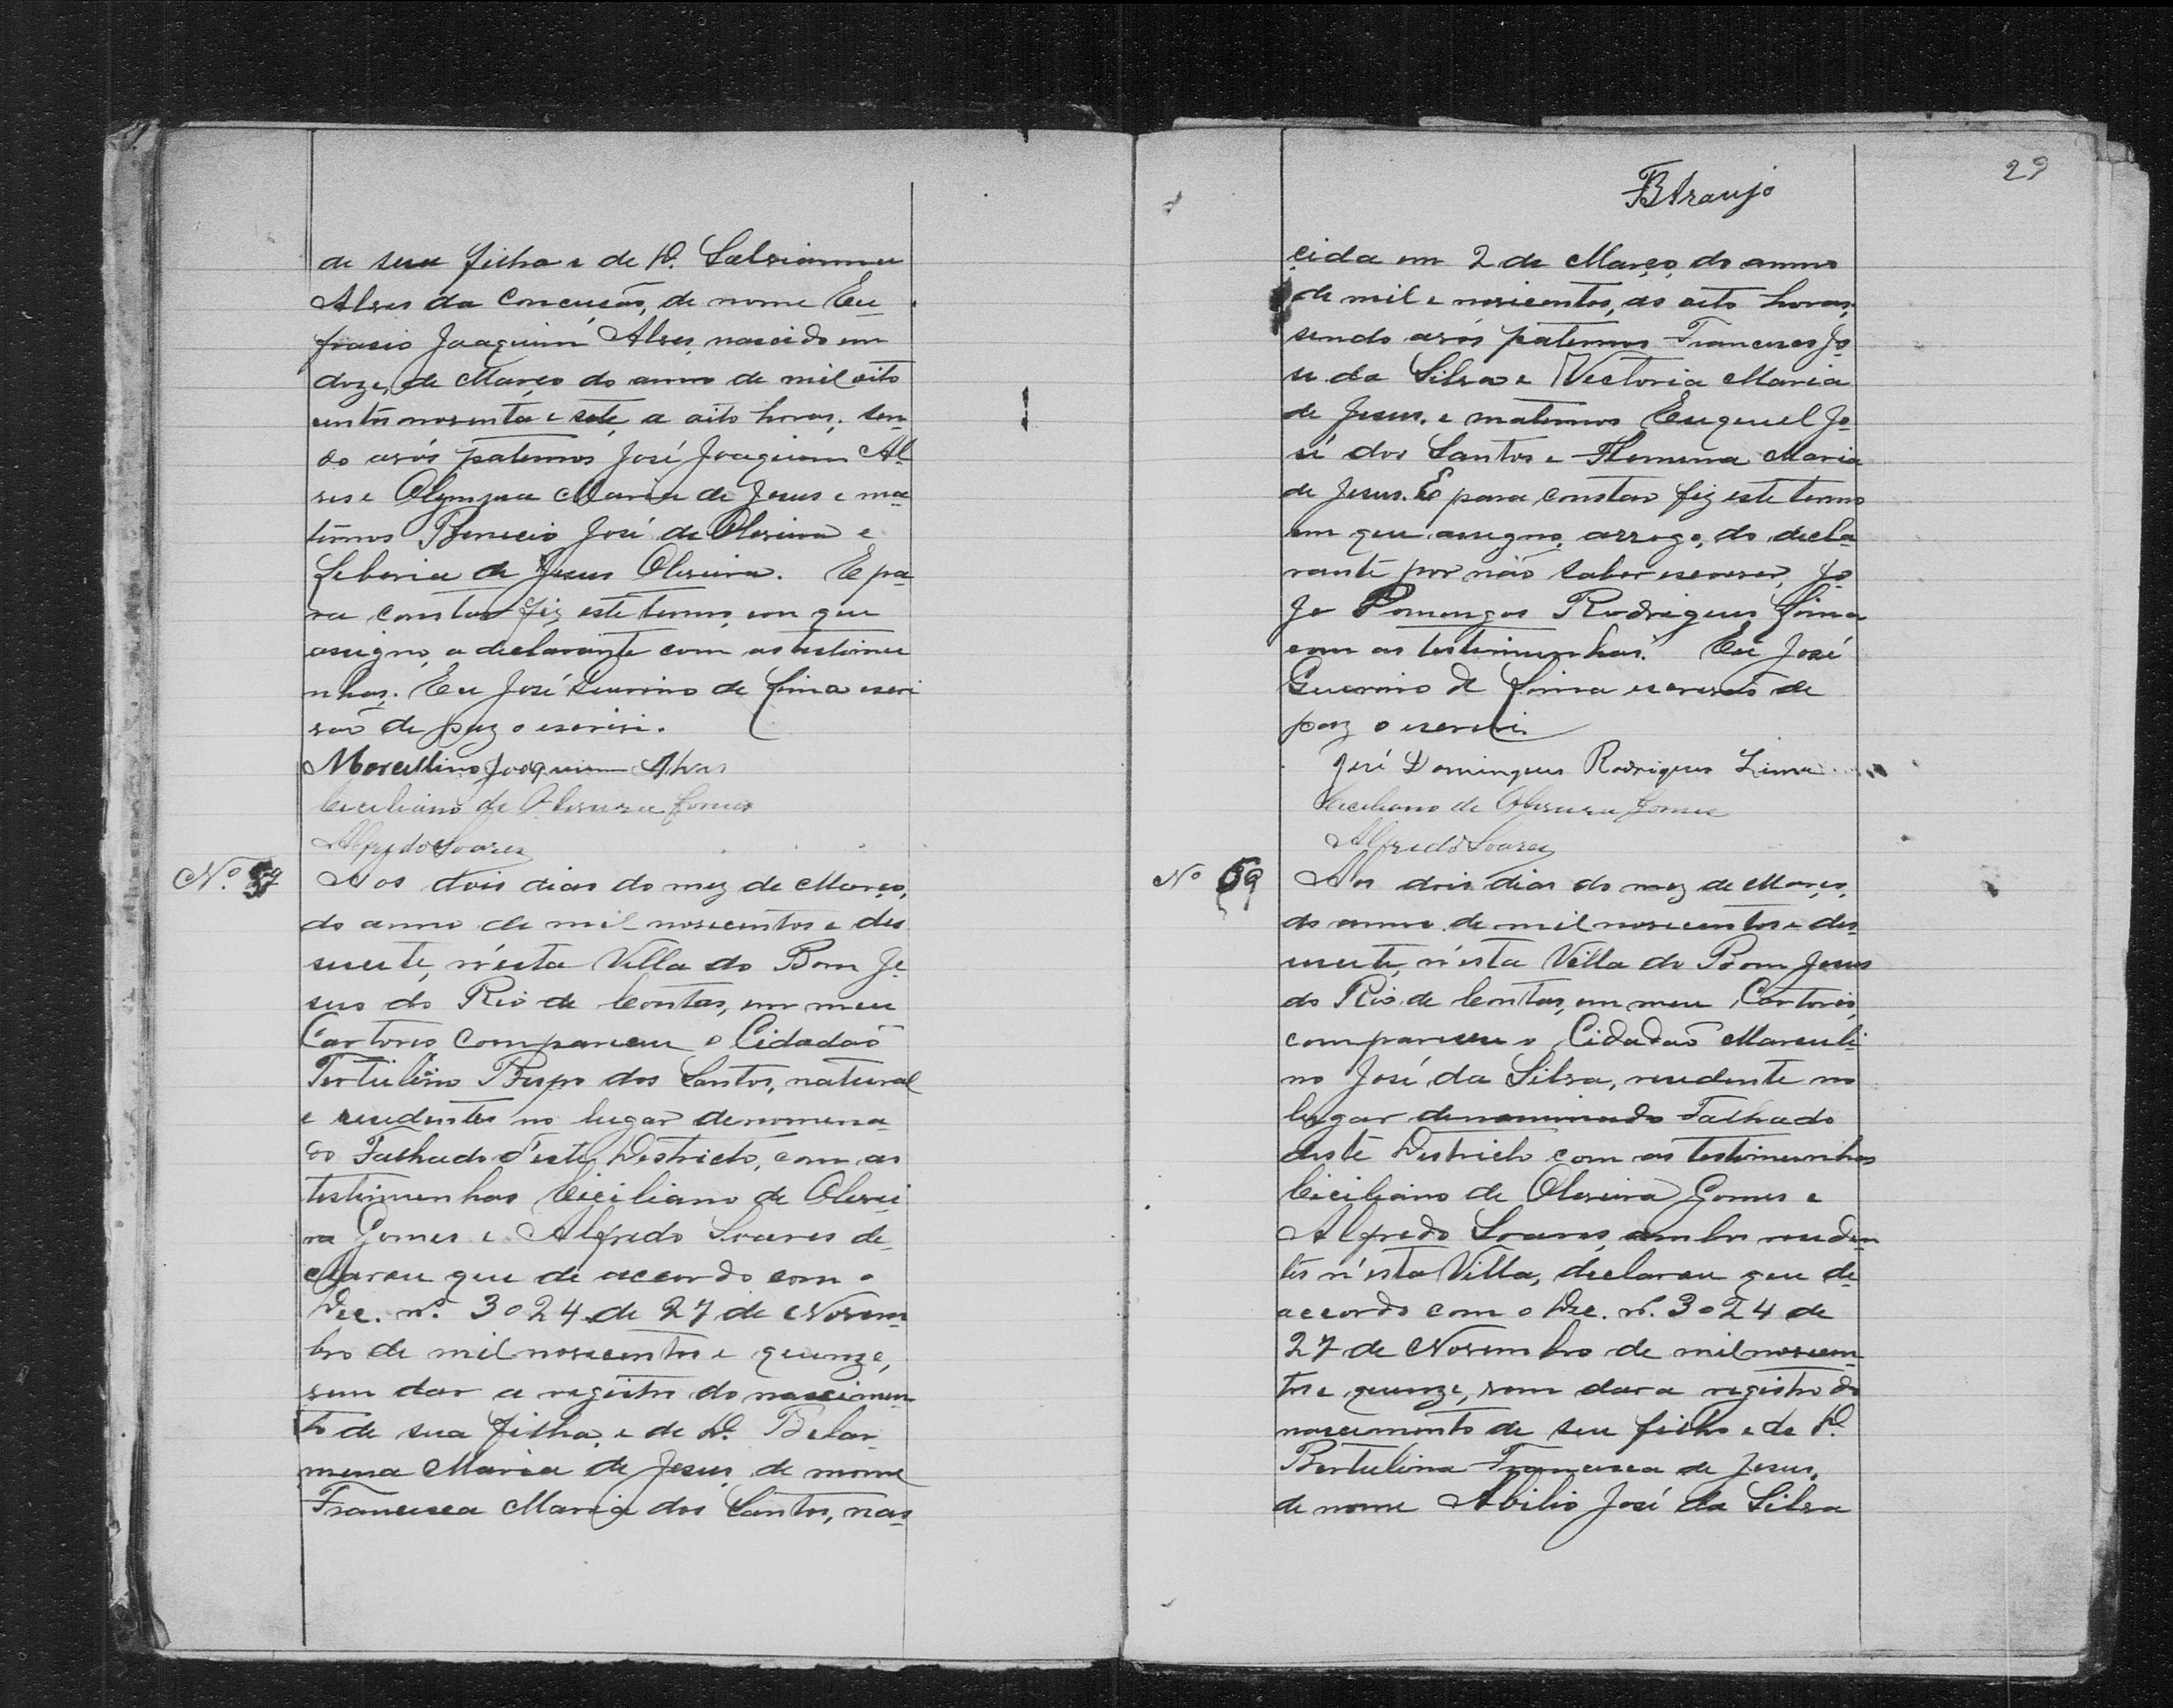 de seu filho e de D. Salvianna
Alves da Conceição, de nome Eu-
frasio Joaquim Alves, nascido em
doze, de Março do anno de mil oito
centos noventa e sete, a oito horas, sen-
do avós paternos José Joaquim Al-
ves e Olympia Maria de Jesus e ma-
ternos Benicio José de Oliveira e
Liberia de Jesus Oliveira. E pa-
ra constar fiz este termo, em que
assigno, o declarante com as testimu
nhas. Eu José Guerino de Lima escri
vão de paz o escrivi.
Marcellino Joaquim Alves
Ciciliano de Oliveira Gomes
Alfredo Soares
Nº
Aos dois dias do mez de Março,
do anno de mil novecentos e des
esete, n'esta Villa do Bom Je-
sus do Rio de Contas, em meu
Cartorio compareceu o Cidadão
Tertulino Bispo dos Santos, natural
e residentes no lugar denomena-
do Falhado d'este Destricto, com as
testimunhas Ciciliano de Olivei-
ra Gomes e Alfredo Soares de-
clarou que de accordo com o
Dec. nº. 3024 de 27 de Novem-
bro de mil novecentos e quinze,
vem dar a registro do nascimen-
to de sua filha, e de D. Belar-
mena Maria de Jesus, de nome
Francisca Maria dos Santos, nas-
29
BAraujo
cida em 2 de Março do anno
de mil e novicentos, as oito horas,
sendo avós paternos Francisco Jo-
se da Silva e Victoria Maria
de Jesus, e maternos Ezequiel Jo-
sé dos Santos e Filomena Maria
de Jesus. E para constar fiz este termo
em que assigno, arrogo, do decla-
rante por não saber escrever, Jo-
Je Domingos Rodrigues Lima
com as testimunhas. Eu José
Guerino de Lima escrivão de
paz o escrevi
José Domingues Rodrigues Lima
Ciciliano de Oliveira Gomes
Alfredo Soares
Nº 59
Aos dois dias do mez de Março,
do anno de mil novecentos e des-
esete, n'esta Villa do Bom Jesus
do Rio de Contas, em meu Cartorio,
compareceu o Cidadão Marculi-
no José da Silva, residente no
lugar denominado Falhado
deste Destricto com as testimunhas
Ciciliano de Oliveira Gomes e
Alfredo Soares, ambos residen-
tes n'esta Villa, declarou que de-
accordo com o Dec. nº. 3024 de
27 de Novembro de mil novecen-
tos e quinze, vem dar a registro do
nascimento de seu filho e de D.
Bertulina Francisca de Jesus,
de nome Abilio José da Silva